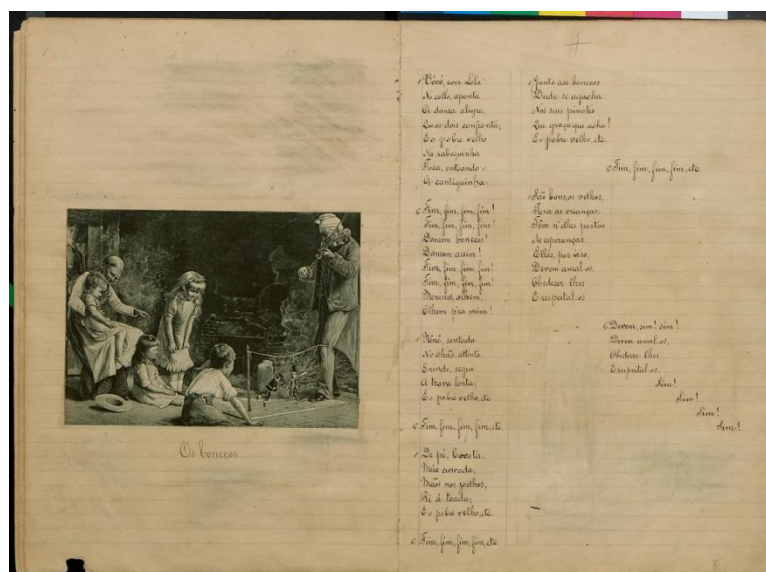 Os bonecos
Vóvó, com Lola
No collo, aponta
A dansa alegre,
Que os dois confronta;
E o pobre velho
Na rabequinha
Toca, entoando
A cantiguinha:
Fim, fim, fim, fim!
Fim, fim, fim, fim!
Dansem bonecos!
Dansem assim!
Fim, fim, fim, fim!
Fim, fim, fim, fim!
Meninos, olhem!
Olhem pra mim!
Nênê, sentada
No chão, attenta
E rindo, segue
A trova lenta;
E o pobre velho, etc
Fim, fim, fim, fim, etc
De pé,
Meio curvada,
Mãos nos joelhos,
Ri á
E o pobre velho, etc
Fim, fim, fim, fim, etc
Junto aos bonecos
Dudu se agacha
Nos seus pinotes
Que graça que acha!
E o pobre velho, etc.
Fim, fim, fim, fim, etc
São bons, os velhos,
Para as crianças:
Têm n'elles postas
As esperanças.
Elles, por isso,
Devem amal-os,
Obedecer-lhes
E respeital-os
Devem, sim! sim!
Devem amal-os,
Obedecer-lhes
E respeital-os.
Sim!
Sim!
Sim!
Sim!